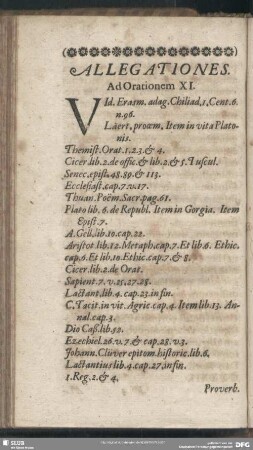 ALLEGATIONES.
Ad Orationem XI.
VId. Erasm. adag. Chiliad. 1. Cent. 6.
n. 96.
Läert. proœm. Item in vita Plato-
nis.
Themist. Orat. 1. 2. 3. & 4.
Cicer. lib. 2. de offic. & lib. 2. & 5. Tuscul.
Senec. epist. 48. 89. & 113.
Ecclesiast. cap. 7. v. 17.
Thuan. Poëm. Sacr. pag. 61.
Plato lib. 6. de Republ. Item in Gorgia. Item
Epist. 7.
A. Gell. lib. 10. cap. 22.
Aristot. lib. 12. Metaph. cap. 7. Et lib. 6. Ethic.
cap. 6. Et lib. 10. Ethic. cap. 7. & 8.
Cicer. lib. 2. de Orat.
Sapient. 7. v. 25. 27. 28.
Lactant. lib. 4. cap. 23. in fin.
C. Tacit. in vit. Agric. cap. 4. Item lib. 13. An-
nal. cap. 3.
Dio Caß. lib. 52.
Ezechiel. 26. v. 7. & cap. 28. v. 3.
Johann. Cluver epitom. historic. lib. 6.
Lactantius lib. 4. cap. 27. in fin.
1. Reg. 2. & 4.
Proverb.
SLUB
DFG